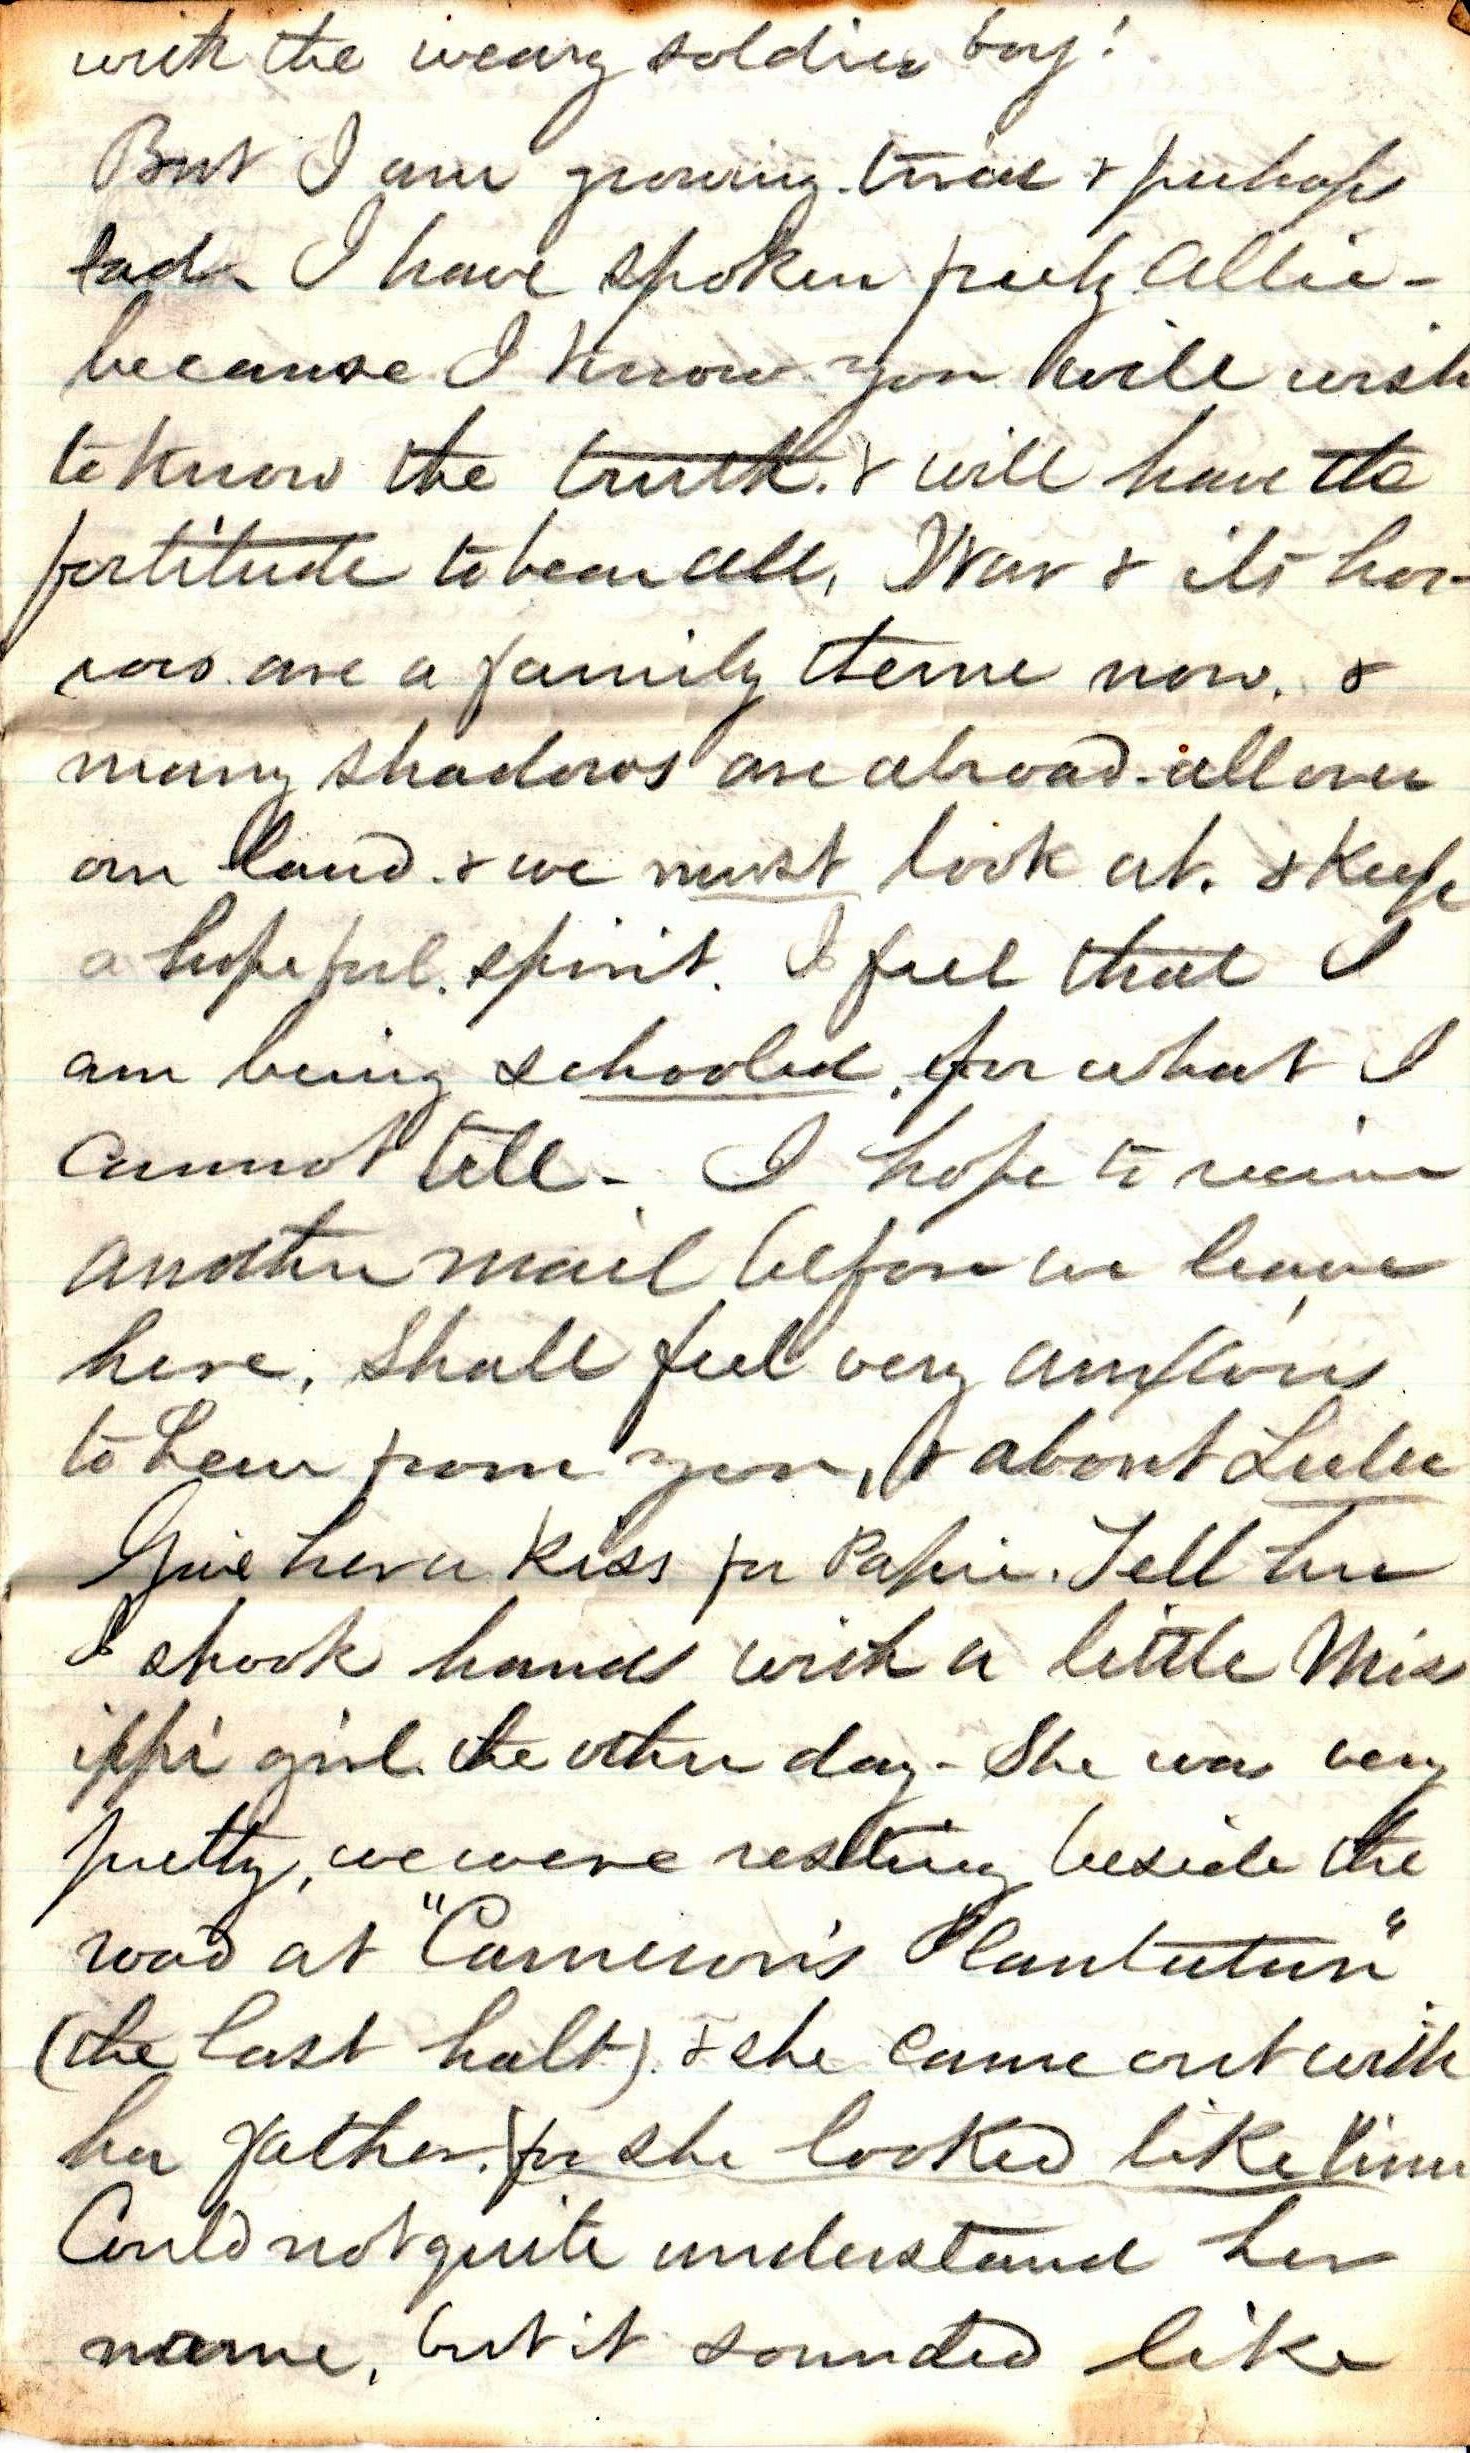 with the weary soldier boy!
But I am growing tired & perhaps
sad. I have spoken freely Allie -
because I know you will wish
to know the truth. & will have the
fortitude to bear all, War & its hor-
rors are a family theme now. &
many shadows are abroad - all over
our land. & we must look at. & Keep
a hopeful spirit. I feel that I
am being schooled, for what I
cannot tell - I hope to receive
another mail before we leave
here, Shall feel very anxious
to hear from you, & about Lulu
Give her a kiss for Papie. Tell her
I shook hands with a little Miss
ippi girl the other day - She was very
pretty, we were resting beside the
road at "Cameron's Plantation"
(the last halt). & she came out with
her father. for she looked like
Could not quite understand her
name, but it sounded like